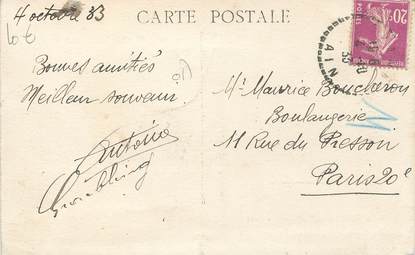 4 octobre 33
CARTE POSTALE
Bonnes amitiés
Meilleur souvenir
Antoine
Mr Maurice Boucheron
Boulangerie
11 Rue du Pressoir
Paris 20e
20c
POSTES
AIN